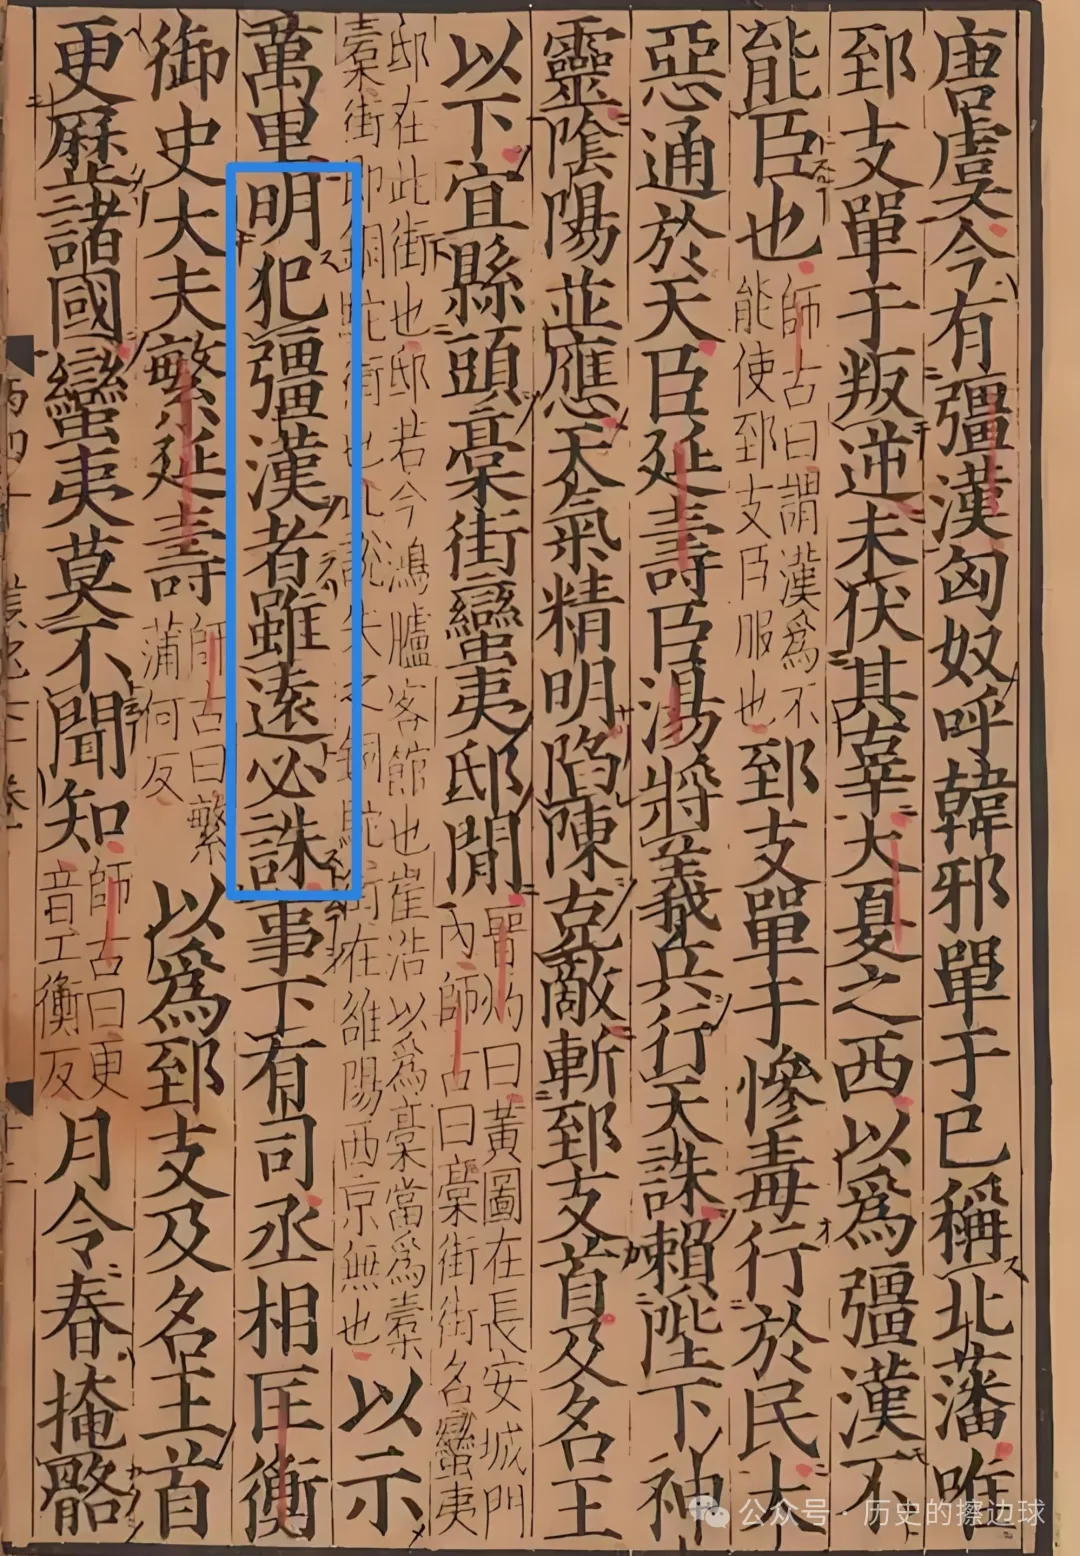 唐虞今有彊漢匈奴呼韓邪單于已稱北藩唯
郅支單于叛逆未伏其辜大夏之西以爲彊漢不
能臣也師古曰謂漢爲不能使郅支臣服也郅支單于慘毒行於民大
惡通於天臣延壽臣湯將義兵行天誅賴陛下神
靈陰陽並應天氣精明陷陳克敵斬郅支首及名王
以下宜縣頭槀街蠻夷邸閒晉灼曰黃圖在長安城門內師古曰槀街街名蠻夷
邸在此街也邸若今鴻臚客館也崔浩以爲槀當爲橐橐街即銅駝街也此說失之銅駝街在雒陽西京無也以示
萬里明犯彊漢者雖遠必誅事下有司丞相匡衡
御史大夫繁延壽師古曰繁蒲何反以爲郅支及名王首
更歷諸國蠻夷莫不聞知師古曰更音工衡反月令春掩骼
公众号 · 历史的擦边球